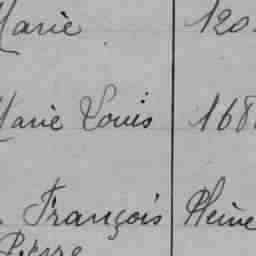 Marie 120
Marie Louis 168
François Pleine
Pierre